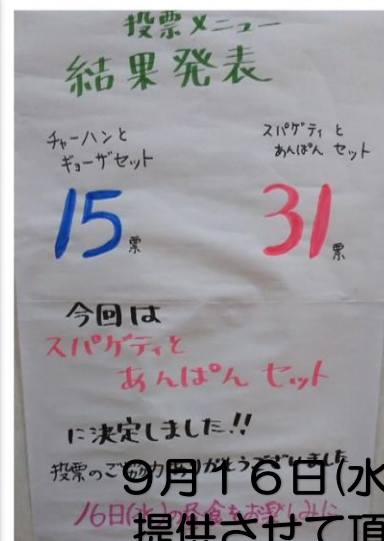 投票メニュー
結果発表
チャーハンと
ギョーザセット
15票
スパゲティと
あんぱんセット
31票
今回は
スパゲティと
あんぱんセット
に決定しました!!
投票のご協力ありがとうございました
9月16日(水
16日(水)の昼食をお楽しみに
提供させて頂